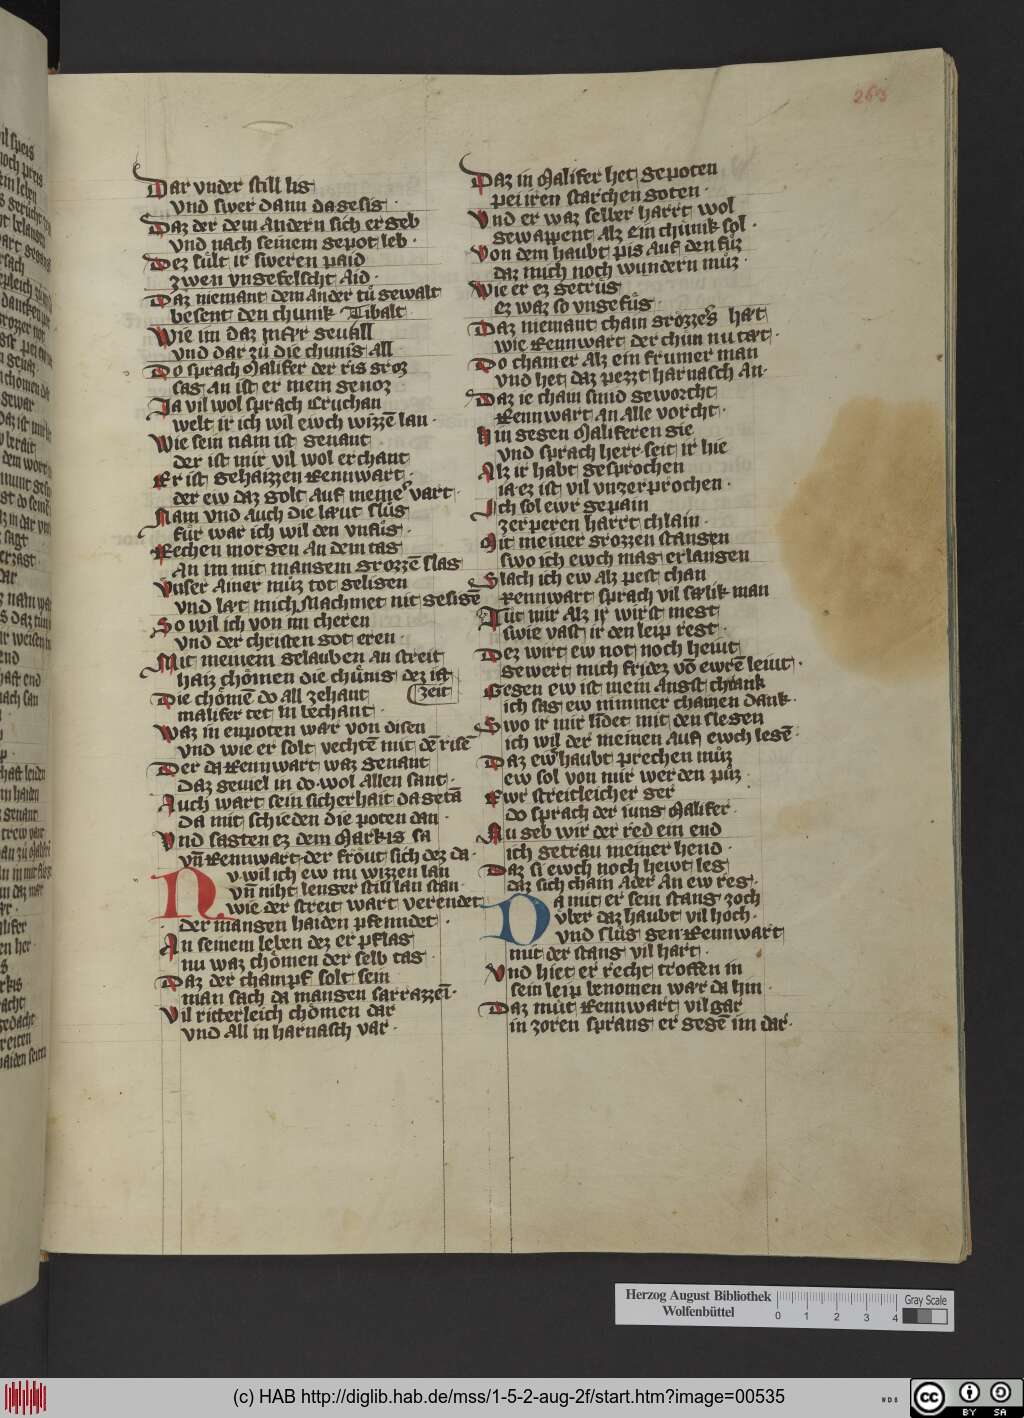 263
Dar vnder still lig
vnd swer dann da gesig
Daz der dem andern sich ergeb
vnd nach seinem gepot leb
Dez sült ir sweren paid
zwen vngefelscht aid
Daz niemant dem ander tů gewalt
besent den chunik Tibalt
Wie im daz geuall
vnd dar zů die chunig all
Do sprach Malifer der ris groz
sag an ist er mein genoz
Ja vil wol sprach Cruchan
welt ir ich wil ewch wizzē lan
Wie sein nam ist genant
der ist mir vil wol erchant
Er ist gehaizzen Rennwart
der ew daz golt auf meine vart
Nam vnd auch die læut slůg
für war ich wil den vnfůg
Rechen morgen an dem tag
An im mit mangem grozzē slag
Vnser ainer můz tot geligen
vnd lat mich Machmet nit gesigē
So wil ich von im cheren
vnd der christen got eren
Mit meinem gelauben an streit
haiz chömen die chünig dez ist
zeit
Die chömē do all zehant
malifer tet in bechant
Waz im enpoten war von disen
vnd wie er solt vechtē mit dē risē
Der da Rennwart waz genant
Daz geuiel in do wol allen sant
Auch wart sein sicherhait da getā
Da mit schieden die poten dan
Vnd sagten ez dem Markis sa
vn̄ Rennwart der fröut sich dez da
Nv wil ich ew nu wizzen lan
vn̄ niht lenger still lan stan
wie der streit wart verendet
der mangen haiden pfenndet
An seinem leben dez er pflag
nu waz chömen der selb tag
Daz der champf solt sein
man sach da mangen sarrazzeī
Vil ritterleich chömen dar
vnd all in harnasch var
Daz in Malifer het gepoten
pei iren starchen goten
Vnd er waz selber harrt wol
gewappent alz ein chunik sol
Von dem haubt pis auf den fůz
daz mich noch wundern můz
Wie er ez getrůg
ez waz so vngefůg
Daz niemant chain grözzers hæt
wie Rennwart der chün nu tæt
Do cham er alz ein frumer man
vnd het daz pezzt harnasch an
Daz ie chain smid geworcht
Rennwart an alle vorcht
Hin gegen Maliferen gie
vnd sprach herr seit ir hie
Alz ir habt gesprochen
ia ez ist vil vnzerprochen
Ich sol ewr gepain
zerperen harrt chlain
Mit meiner grozzen stangen
swo ich ewch mag erlangen
Slach ich ew alz pest chan
Rennwart sprach vil sælik man
Tůt mir alz ir wirst megt
swie vast ir den leip regt
Dez wirt ew not noch hewt
gewert mich fridez vō ewrē lewt
Gegen ew ist mein angst chrank
ich sag ew nimmer chainen dank
Swo ir mir lidet mit den slegen
ich wil der meinen auf ewch legē
Daz ew haubt prechen můz
ew sol von mir werden půz
Ewr streitleicher ger
do sprach der iung Malifer
Nu geb wir der red ein end
ich getrau meiner hend
Daz si ewch noch hewt leg
daz sich chain ader an ew reg
Da mit er sein stang zoch
vber daz haubt vil hoch
vnd slůg gen Rennwart
mit der stang vil hart
Vnd hiet er recht troffen in
sein leip benomen war da hin
Daz mut Rennwart vil gar
in zoren sprang er gegē im dar
Herzog August Bibliothek
Wolfenbüttel
0 1 2 3 4
Gray Scale
(c) HAB http://diglib.hab.de/mss/1-5-2-aug-2f/start.htm?image=00535
WDB
cc BY SA